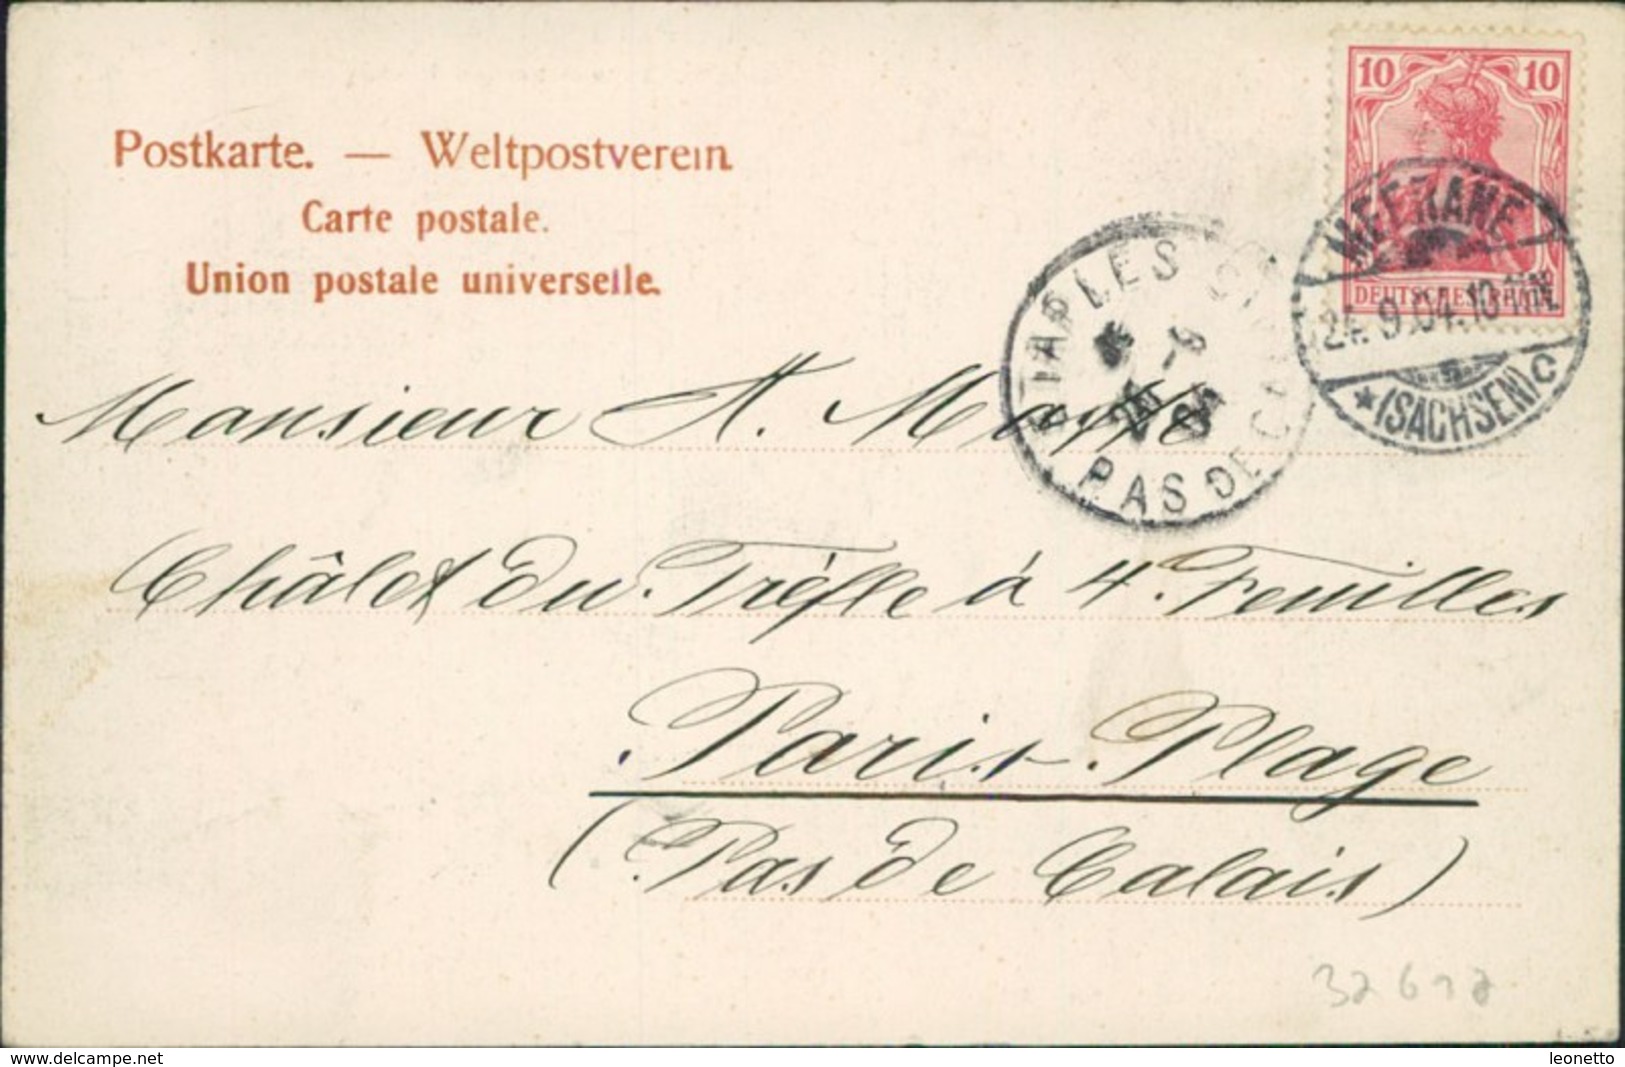 10 10
DEUTSCHES REICH
MEERANE
24.9.04.10-11N.
*(SACHSEN) c
Postkarte. — Weltpostverein
Carte postale.
Union postale universelle.
ETAPLES
PAS DE CALAIS
Monsieur A.
Châlet du Trèfle à 4 Feuilles
Paris-Plage
(Pas de Calais)
www.delcampe.net
leonetto